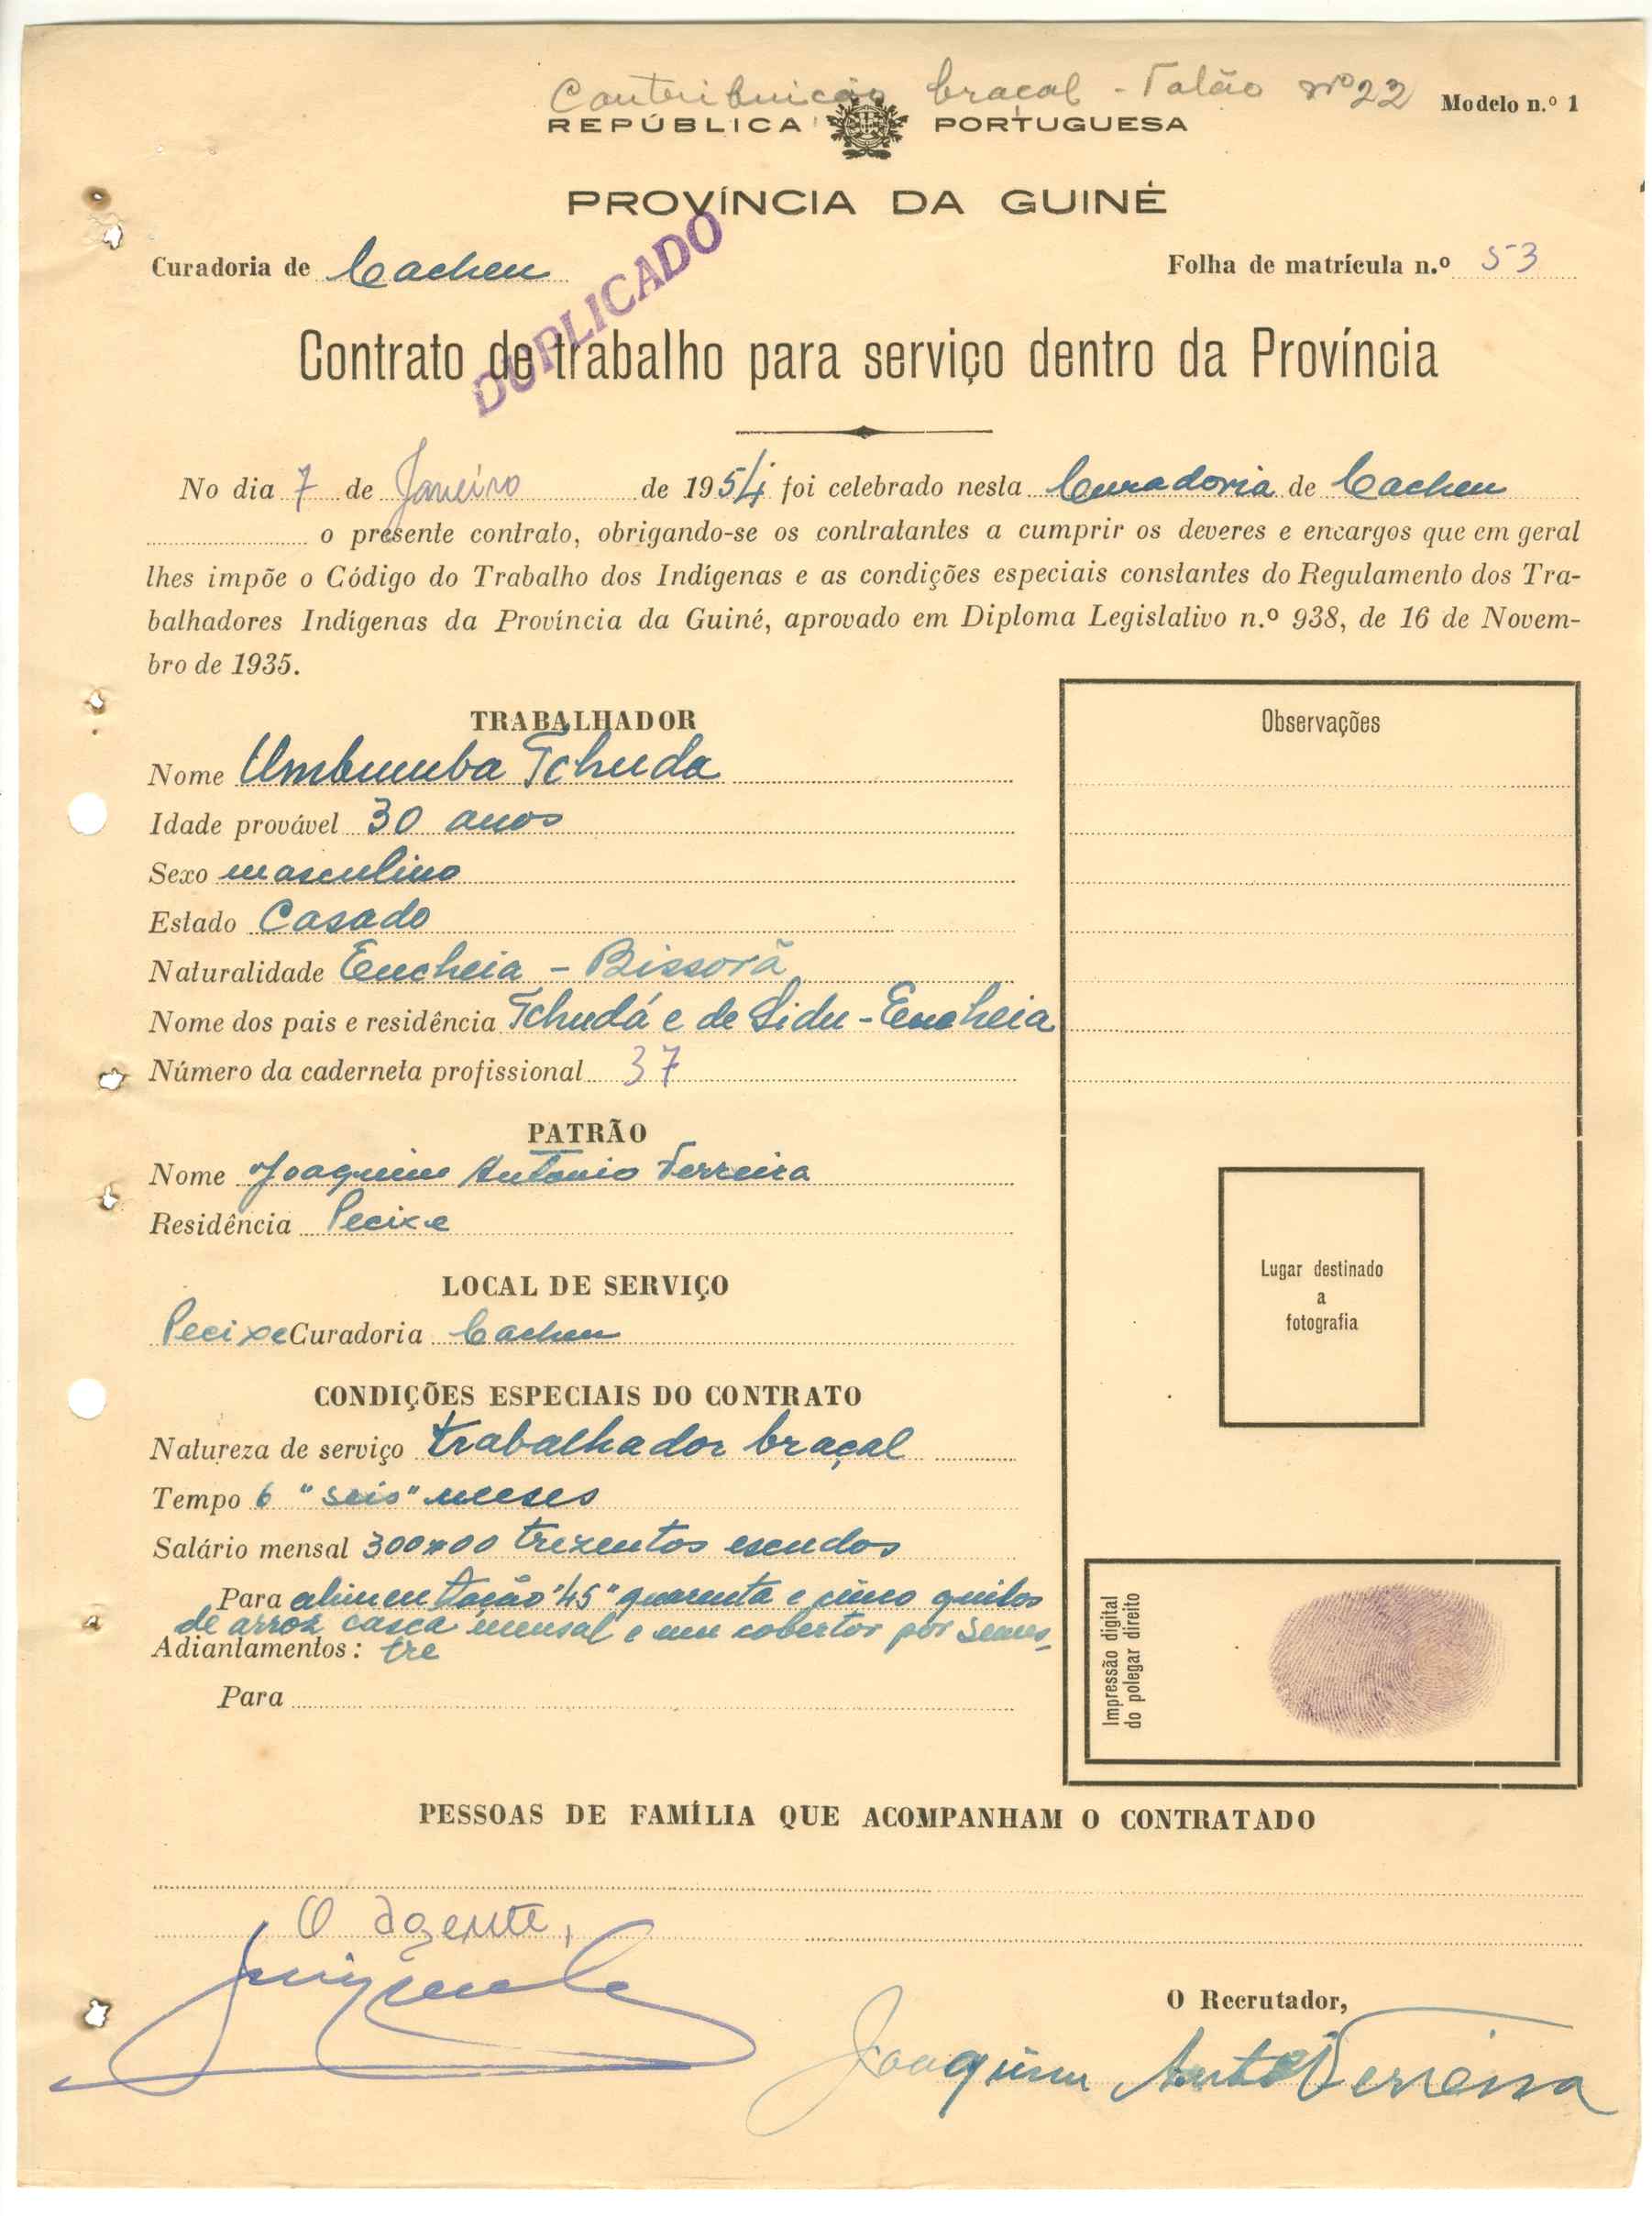 Contribuição braçal - Talão nº 22
Modelo n.º 1
REPÚBLICA PORTUGUESA
PROVÍNCIA DA GUINÉ
DUPLICADO
Curadoria de Cacheu
Folha de matrícula n.º 53
Contrato de trabalho para serviço dentro da Província
No dia 7 de Janeiro de 1954 foi celebrado nesta Curadoria de Cacheu
o presente contrato, obrigando-se os contratantes a cumprir os deveres e encargos que em geral
lhes impõe o Código do Trabalho dos Indígenas e as condições especiais constantes do Regulamento dos Tra-
balhadores Indígenas da Província da Guiné, aprovado em Diploma Legislativo n.º 938, de 16 de Novem-
bro de 1935.
TRABALHADOR
Nome Umbumba Tchuda
Idade provável 30 anos
Sexo masculino
Estado Casado
Naturalidade Encheia - Bissorã
Nome dos pais e residência Tchudá e de Sidu - Encheia
Número da caderneta profissional 37
Observações
PATRÃO
Nome Joaquim Antonio Ferreira
Residência Pecixe
LOCAL DE SERVIÇO
Pecixe Curadoria Cacheu
Lugar destinado
a
fotografia
CONDIÇÕES ESPECIAIS DO CONTRATO
Natureza de serviço trabalhador braçal
Tempo 6 "seis" meses
Salário mensal 300$00 trezentos escudos
Para alimentação "45" quarenta e cinco quilos
de arroz casca mensal e um cobertor por Semes-
Adiantamentos: tre
Para
Impressão digital
do polegar direito
PESSOAS DE FAMÍLIA QUE ACOMPANHAM O CONTRATADO
O agente,
O Recrutador,
Joaquim Antº Ferreira